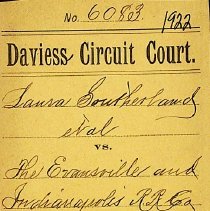 No. 6083. 1922
Daviess Circuit Court.
Laura Southerland
et al
vs.
The Evansville and
Indianapolis R.R. Co